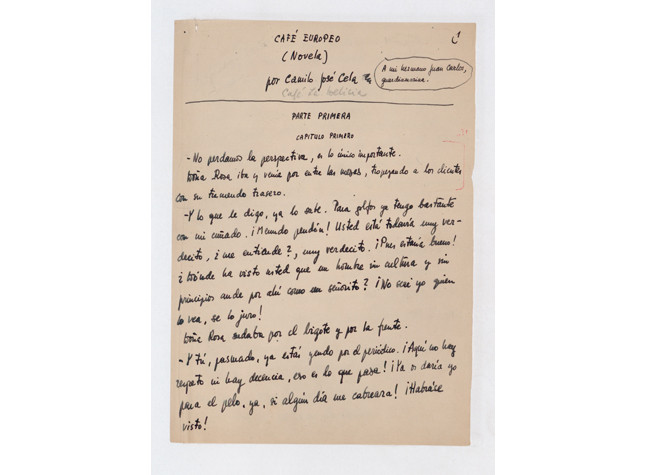 CAFÉ EUROPEO
(Novela)
por Camilo José Cela
A mi hermano Juan Carlos,
guardiamarina.
Café La Delicia
PARTE PRIMERA
CAPITULO PRIMERO
- No perdamos la perspectiva, es lo único importante.
Doña Rosa iba y venía por entre las mesas, tropezando a los clientes
con su tremendo trasero.
- Y lo que le digo, ya lo sabe. Para golfos ya tengo bastante
con mi cuñado. ¡Menudo pendón! Usted está todavía muy ver-
decito, ¿me entiende?, muy verdecito. ¡Pues estaría bueno!
¿Dónde ha visto usted que un hombre sin cultura y sin
principios ande por ahí como un señorito? ¡No seré yo quien
lo vea, se lo juro!
Doña Rosa sudaba por el bigote y por la frente.
- Y tú, pasmado, ya estás yendo por el periódico. ¡Aquí no hay
respeto ni hay decencia, eso es lo que pasa! ¡Ya os daría yo
para el pelo, ya, si algún día me cabreara! ¡Habráse
visto!